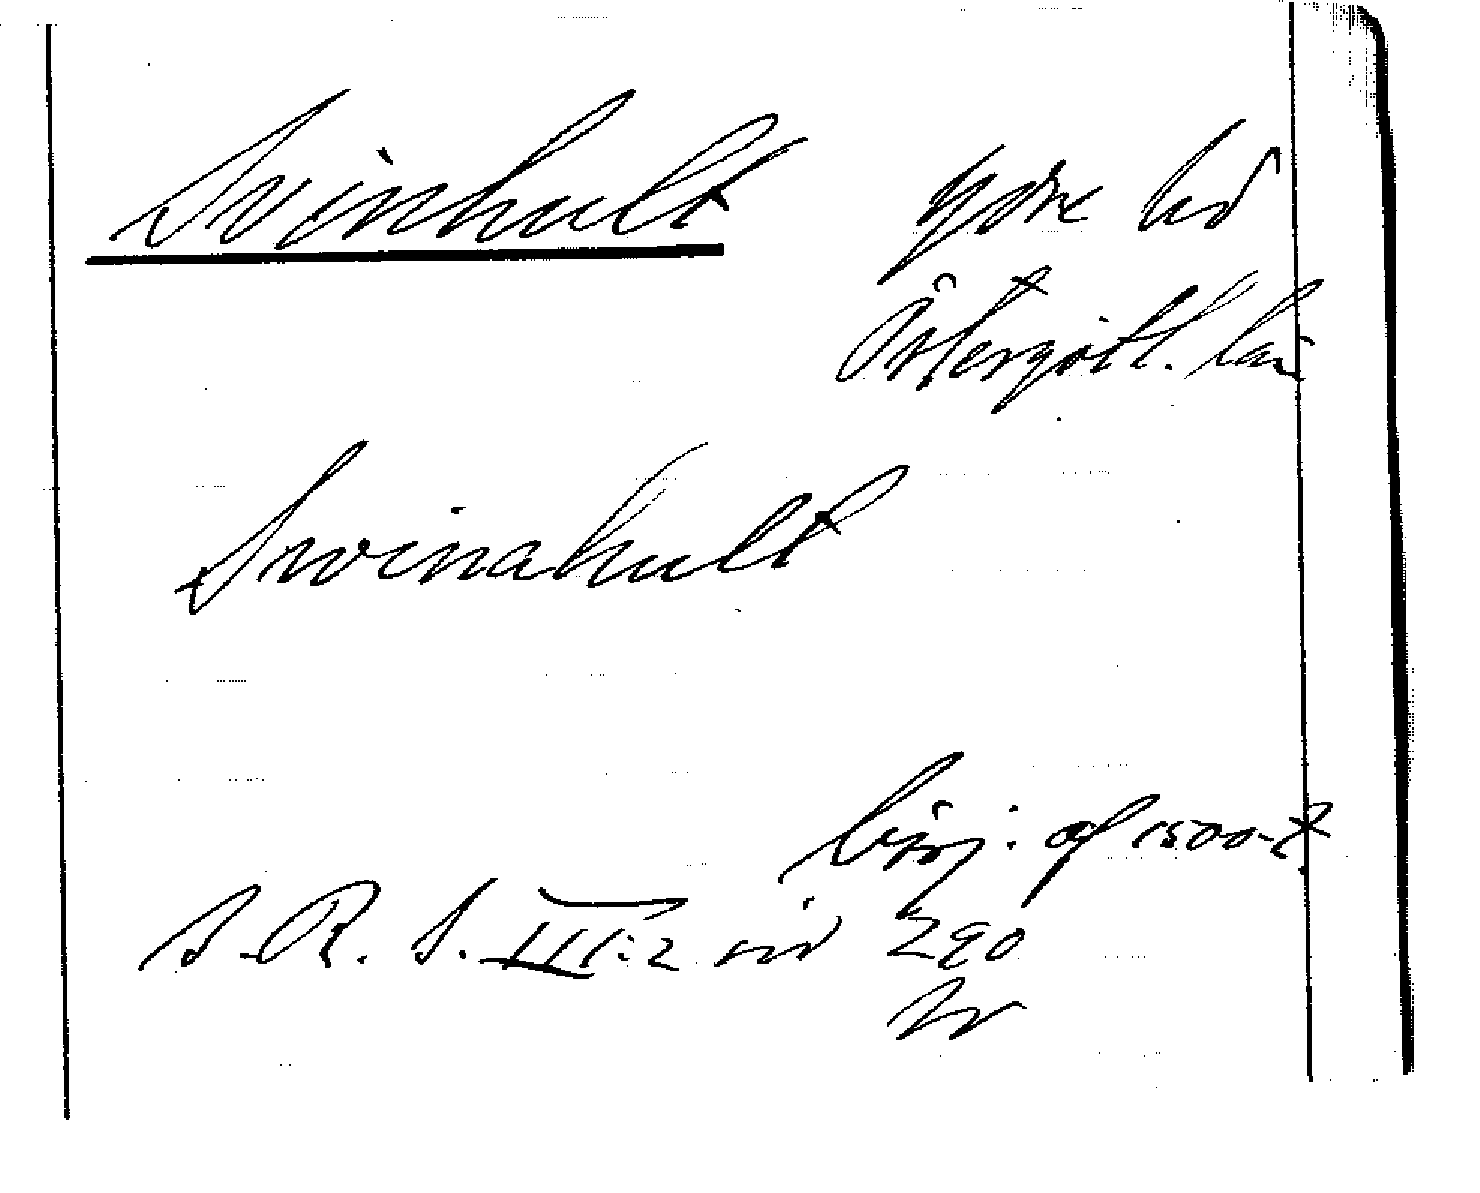 Svinhult Ydre hd
Östergötl. län
Swinahult
börj. af 1500-t
S. R. S. III:2 sid 290